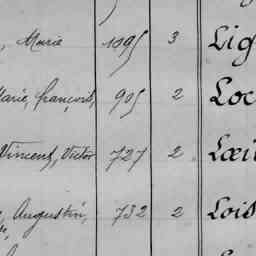 , Marie 1095 3 Lig
Marie, françois, 905 2 Loc
Vincent, Victor 727 2 Lœi
, Augustin, 732 2 Lois